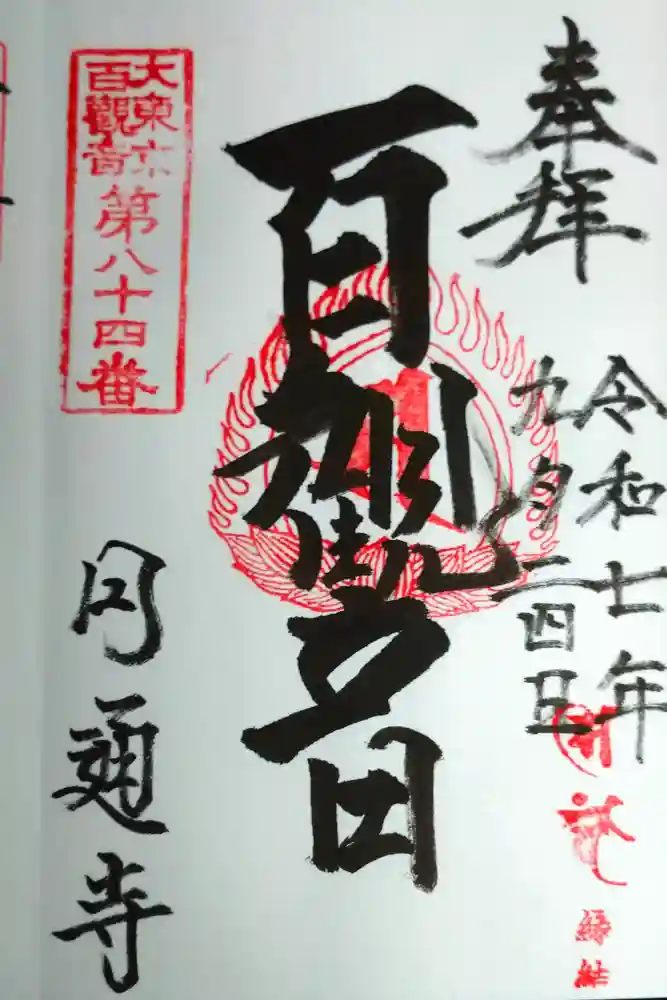 奉拝
令和七年
九月二四日
縁結
百観音
大東京
百觀音
第八十四番
円通寺